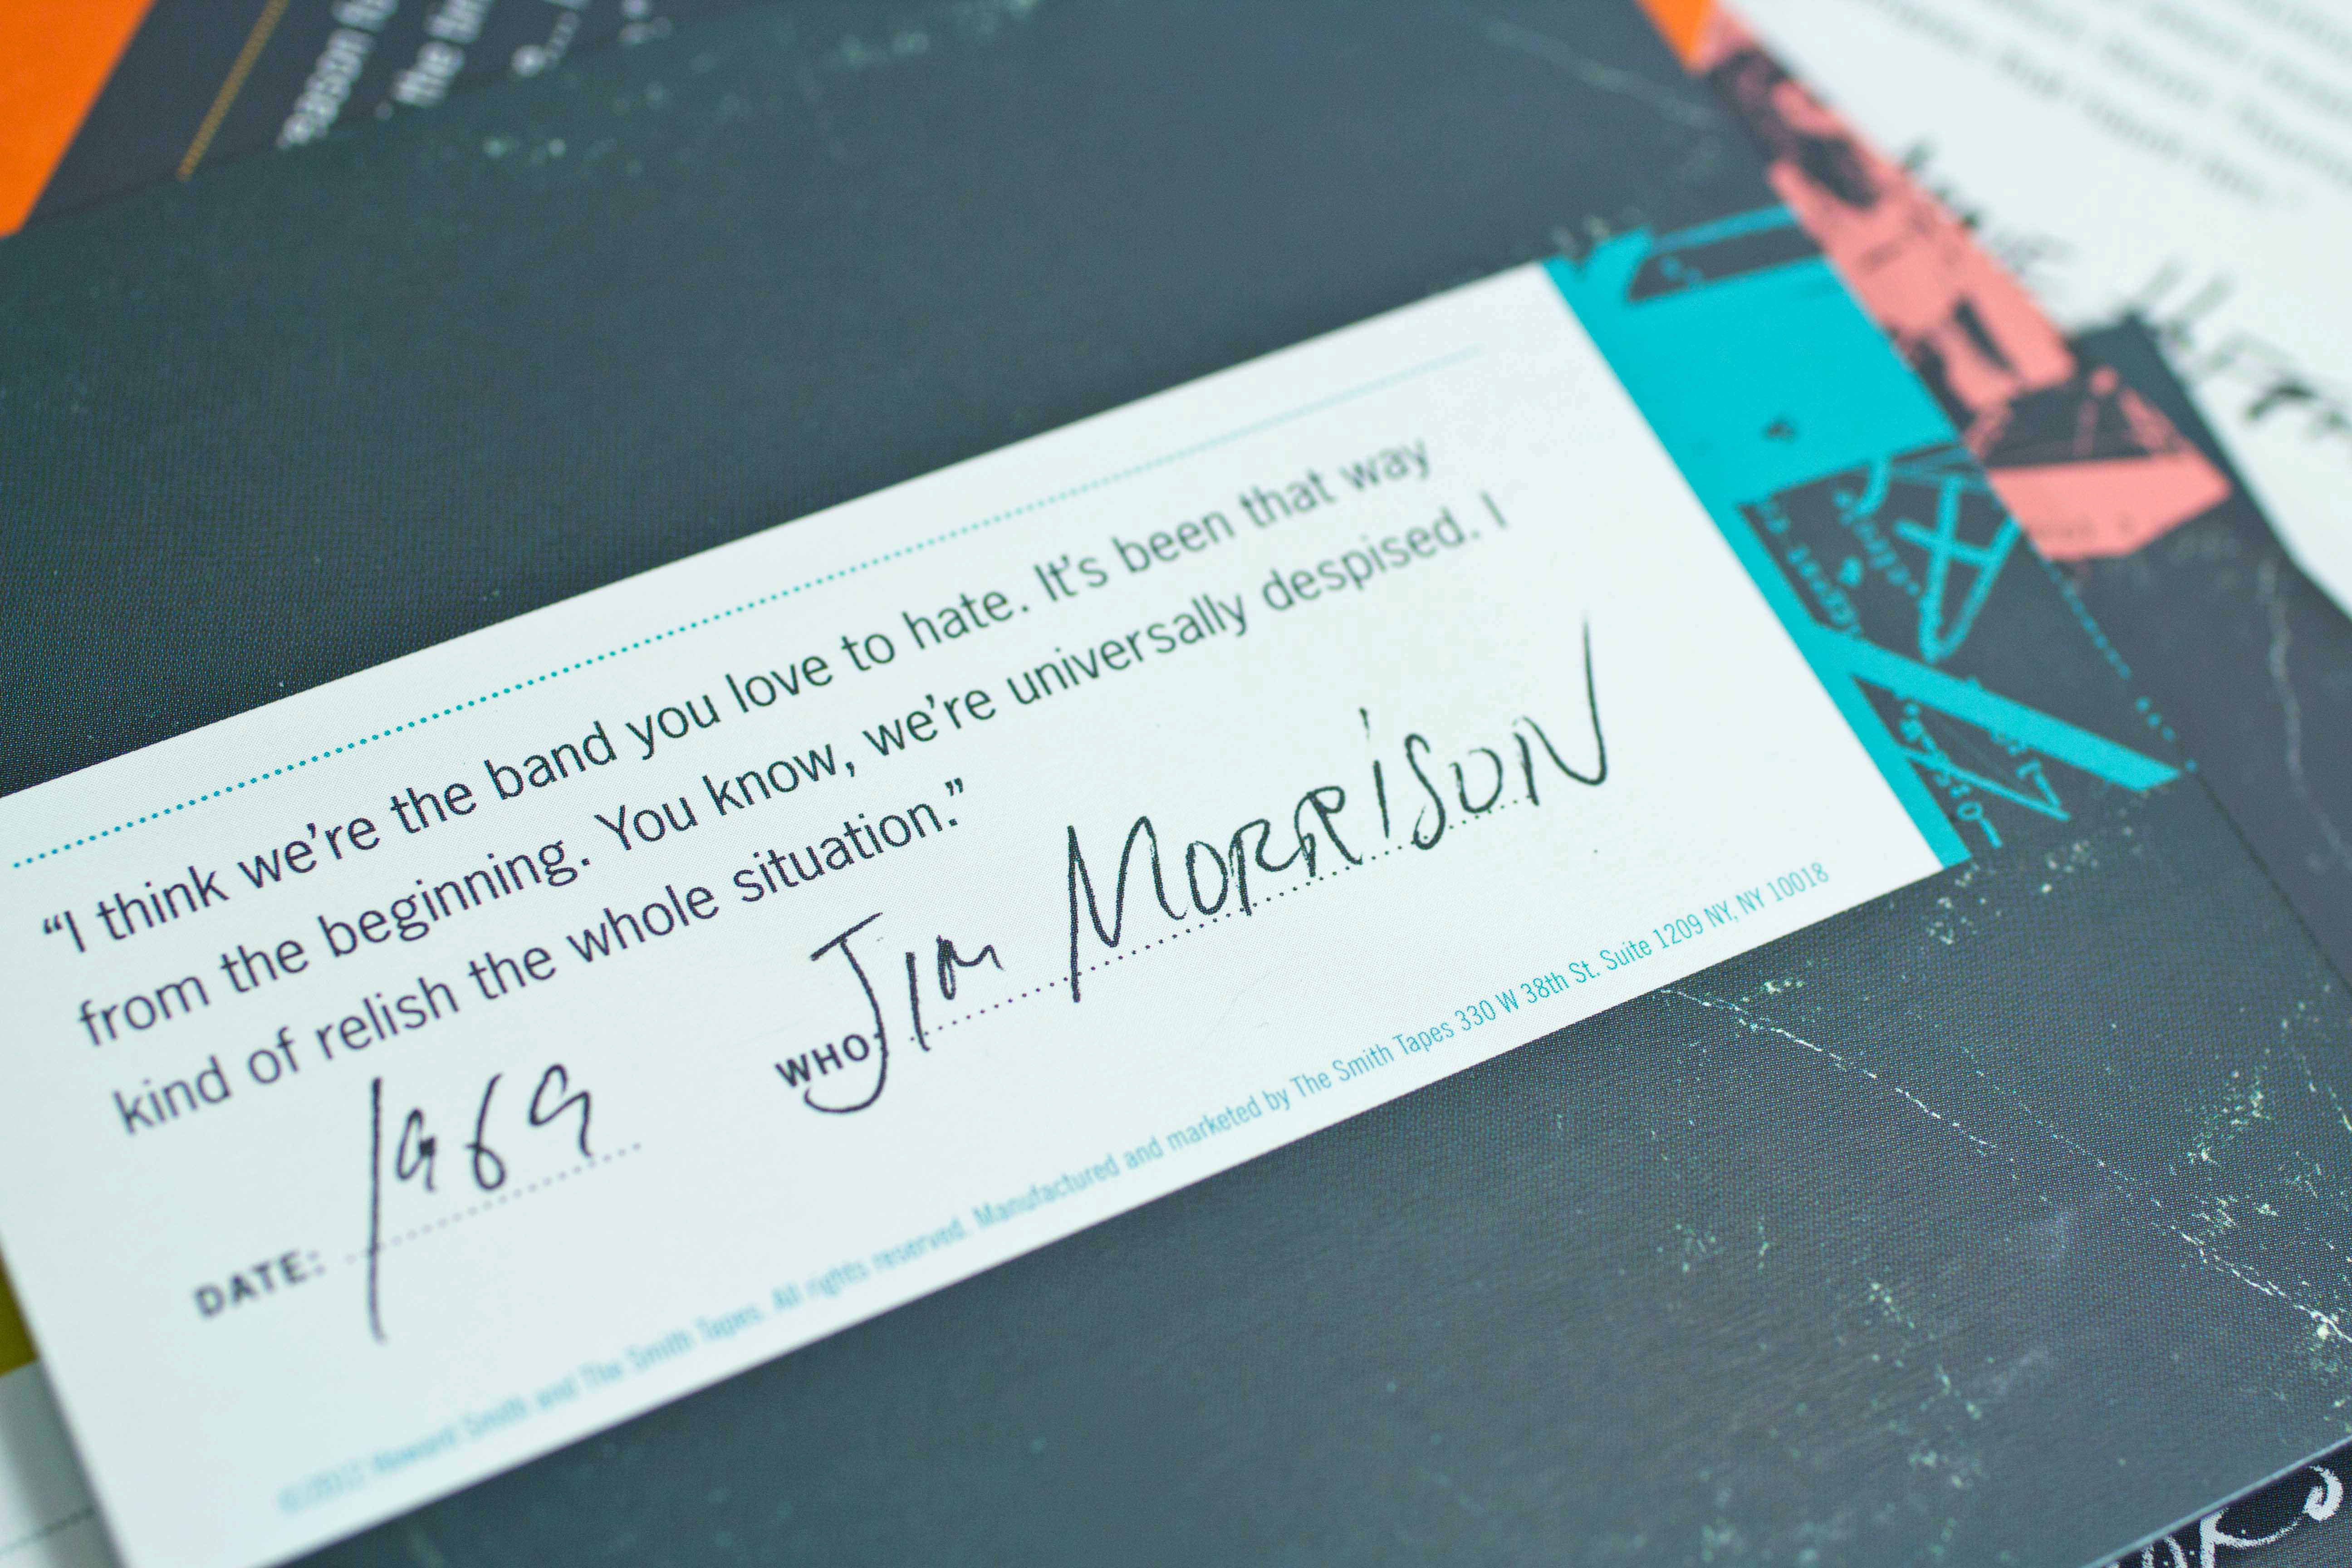 eason
the
“I think we’re the band you love to hate. It’s been that way
from the beginning. You know, we’re universally despised. I
kind of relish the whole situation.”
DATE: 1969 WHO: Jim Morrison
Howard Smith and The Smith Tapes. All rights reserved. Manufactured and marketed by The Smith Tapes 330 W 38th St. Suite 1209 NY, NY 10018